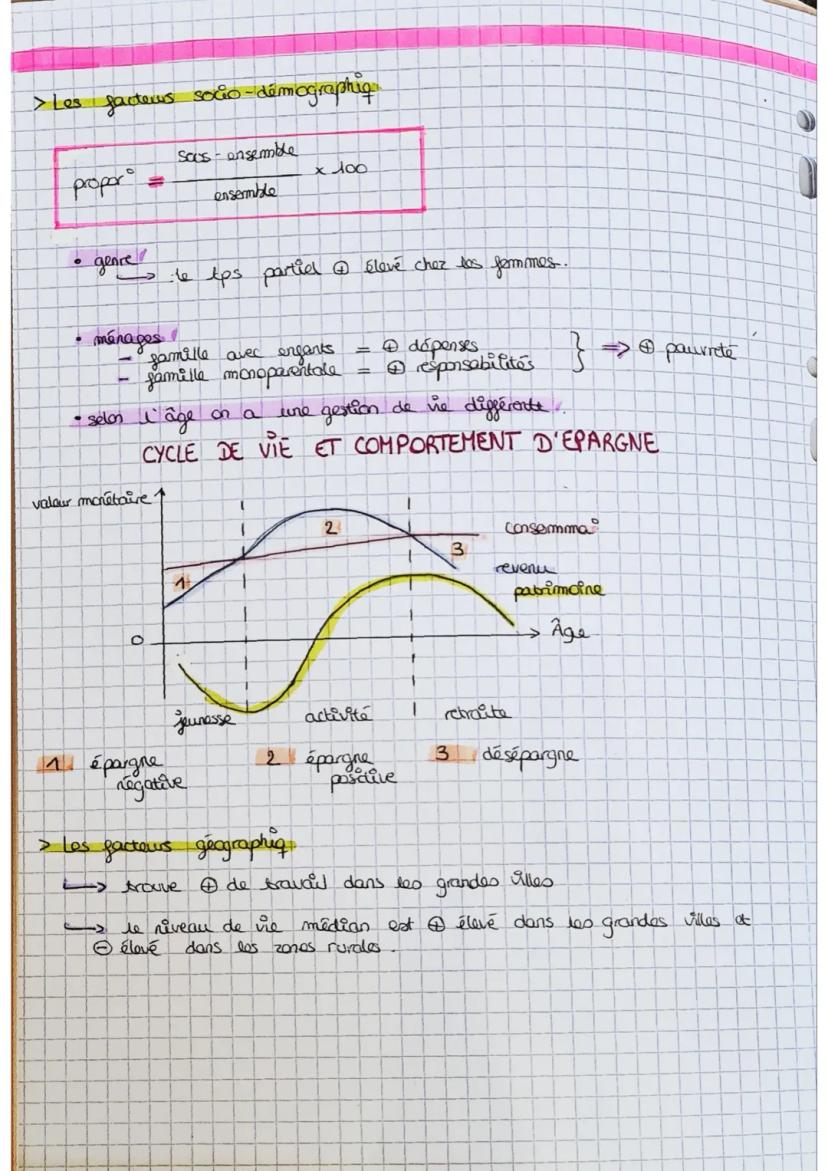 > Les facteurs socio-démographiq
propor° = sous-ensemble / ensemble x 100
• genre
↳ le tps partiel ⊕ élevé chez les femmes.
• ménages
- famille avec enfants = ⊕ dépenses
- famille monoparentale = ⊕ responsabilités } => ⊕ pauvreté
• selon l'âge on a une gestion de vie différente.
CYCLE DE VIE ET COMPORTEMENT D'EPARGNE
valeur monétaire
consomma°
2
3
1
revenu
patrimoine
0
Âge
jeunesse activité retraite
1 épargne négative
2 épargne positive
3 désépargne
> Les facteurs géographiq
↳ trouve ⊕ de travail dans les grandes villes
↳ le niveau de vie médian est ⊕ élevé dans les grandes villes et
⊖ élevé dans les zones rurales.